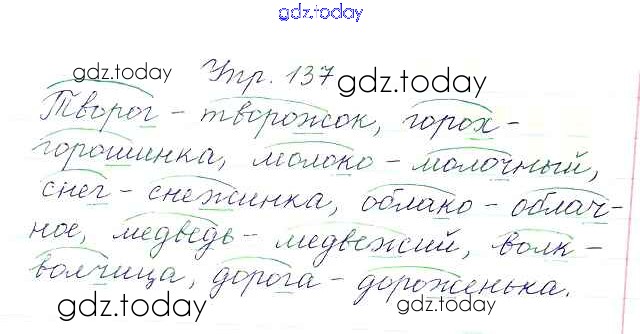 gdz.today
gdz.today Упр. 137 gdz.today
Творог - творожок, горох -
горошинка, молоко - молочный,
снег - снежинка, облако - облач-
ное, медведь - медвежий, волк -
волчица, дорога - дороженька.
gdz.today gdz.today gdz.today